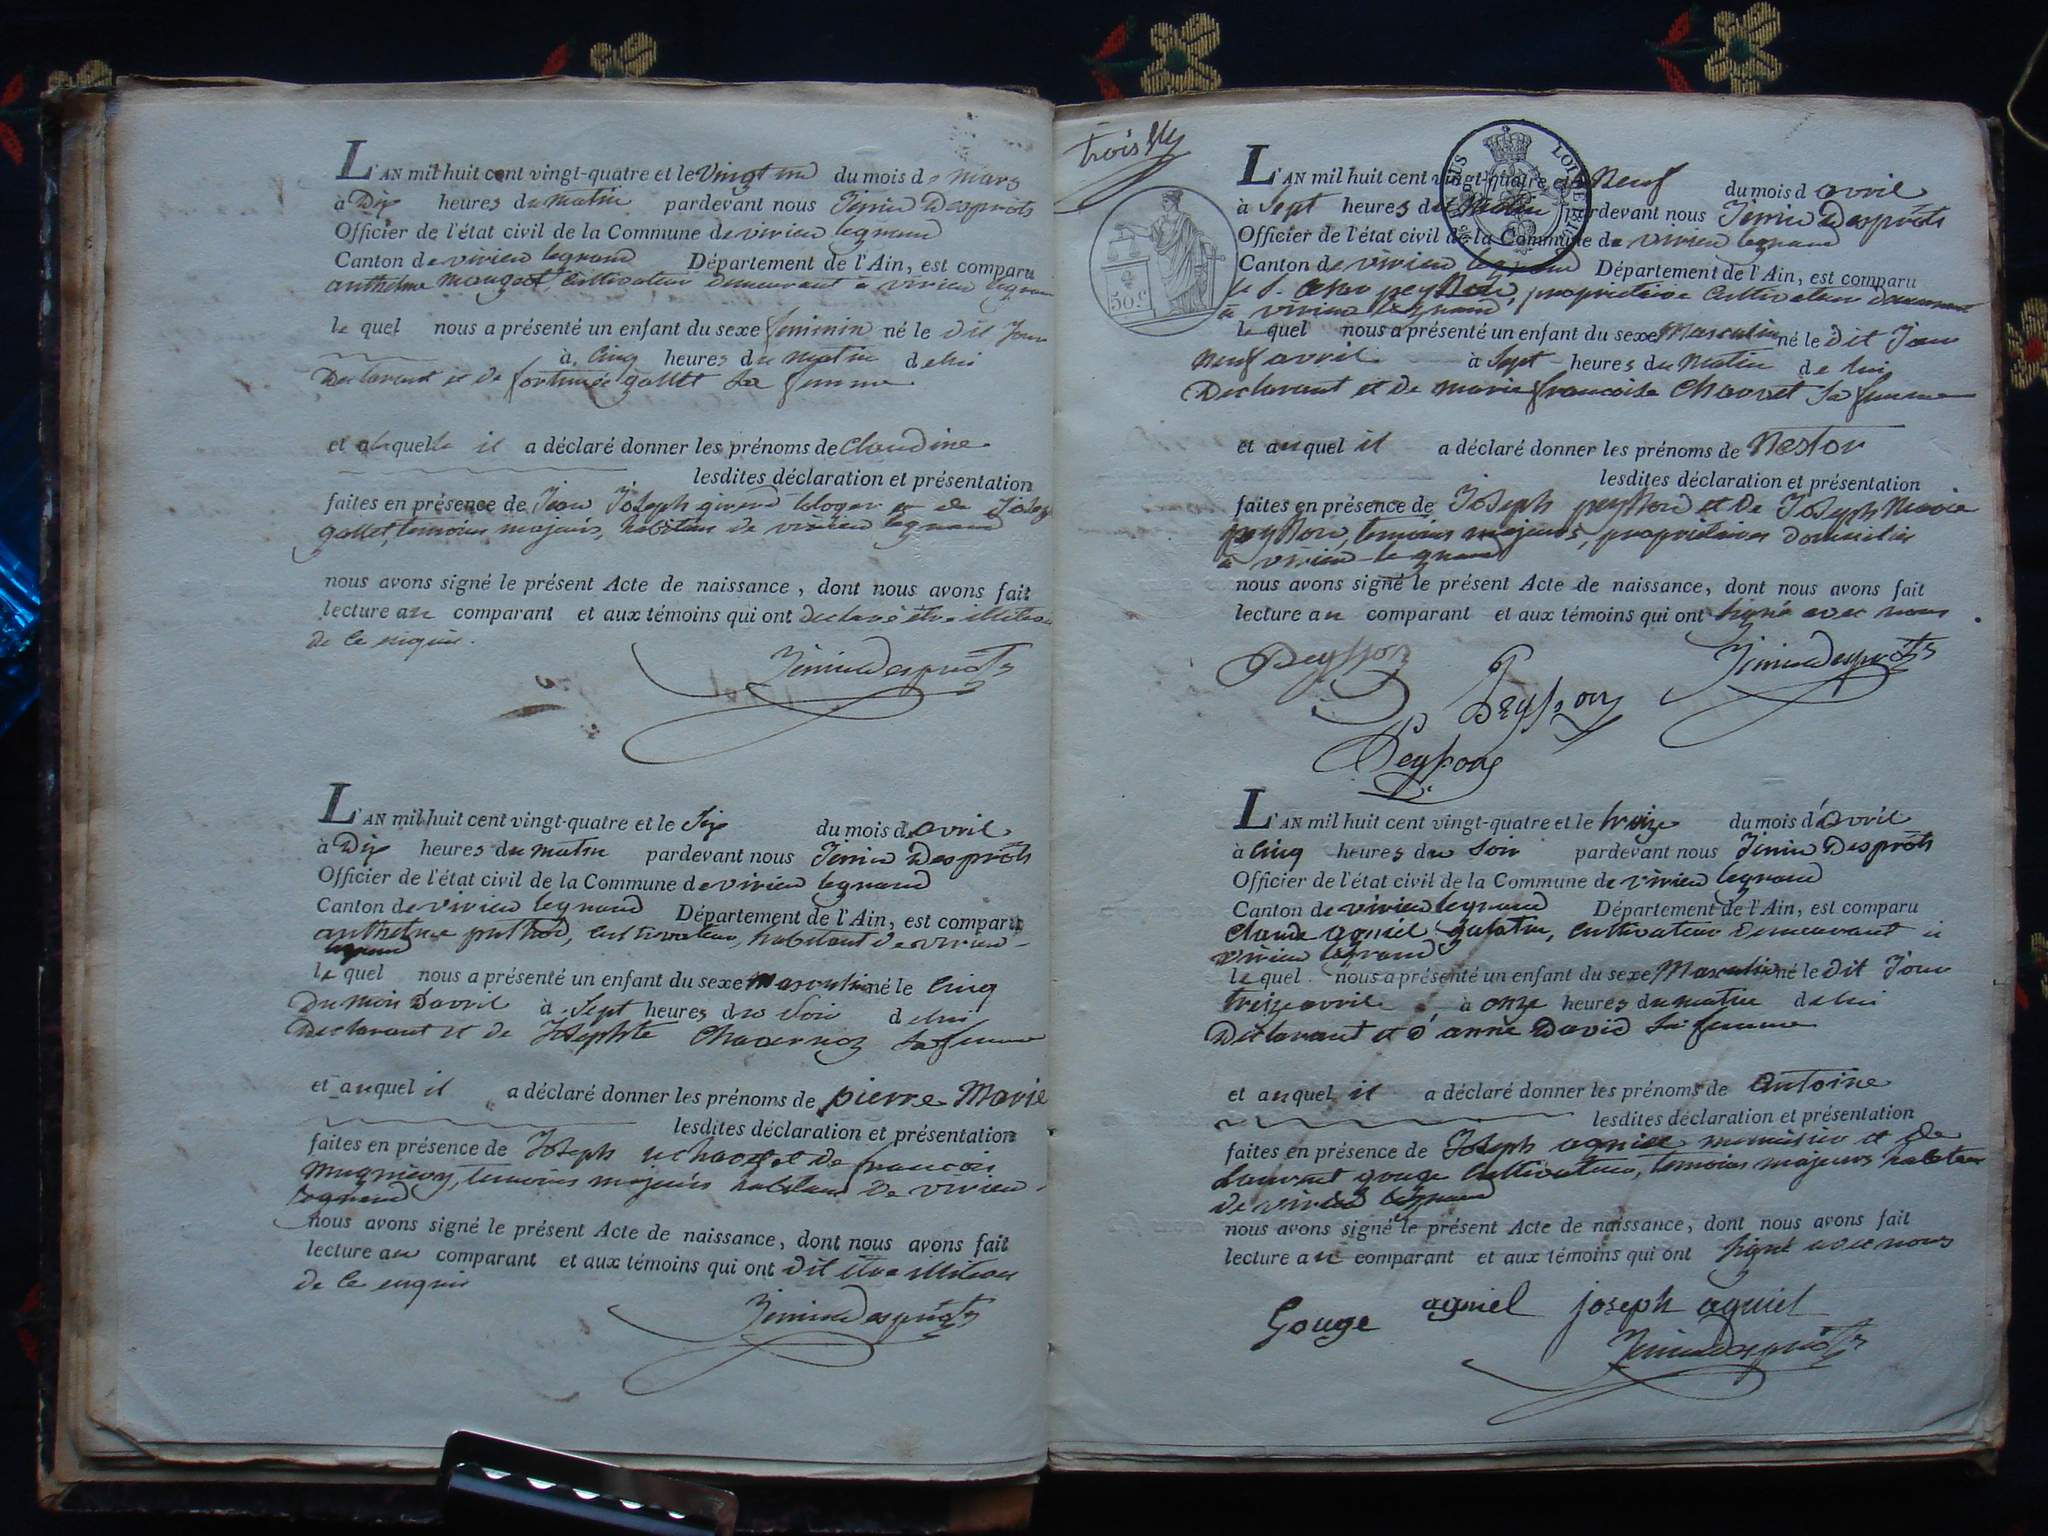 L'AN mil huit cent vingt-quatre et le vingt un du mois de mars
à Dix heures du matin pardevant nous Jenin Desprôts
Officier de l'état civil de la Commune de virieu legrand
Canton de virieu legrand Département de l'Ain, est comparu
anthelme Cultivateur Demeurant a virieu legrand
le quel nous a présenté un enfant du sexe feminin né le dit Jour
à Cinq heures du matin de lui
Declarant et de fortunée gallet sa femme
et a laquelle il a déclaré donner les prénoms de Claudine
lesdites déclaration et présentation
faites en présence de Jean Joseph et de
gallet, temoins majeurs, habitans de virieu legrand
nous avons signé le présent Acte de naissance, dont nous avons fait
lecture au comparant et aux témoins qui ont declaré être illiteres
de ce enquis.
Jenin Desprôts
L'AN mil huit cent vingt-quatre et le Six du mois d'avril
à Dix heures du matin pardevant nous Jenin Desprôts
Officier de l'état civil de la Commune de virieu legrand
Canton de virieu legrand Département de l'Ain, est comparu
anthelme puthod, cultivateur, habitant de virieu
legrand
le quel nous a présenté un enfant du sexe masculin né le Cinq
Du mois D'avril à Sept heures du Soir de lui
Declarant et de Josephte sa femme
et auquel il a déclaré donner les prénoms de pierre Marie
lesdites déclaration et présentation
faites en présence de Joseph et de francois
Mugniery, temoins majeurs habitans de virieu
legrand
nous avons signé le présent Acte de naissance, dont nous avons fait
lecture au comparant et aux témoins qui ont dit etre illiteres
de ce enquis
Jenin Desprôts
trois
50 c
LOUIS
L'AN mil huit cent vingt-quatre et le Neuf du mois d'avril
à Sept heures du Matin pardevant nous Jenin Desprôts
Officier de l'état civil de la Commune de virieu legrand
Canton de virieu legrand Département de l'Ain, est comparu
le S. peysson, proprietaire Cultivateur demeurant
à virieu legrand
le quel nous a présenté un enfant du sexe Masculin né le dit Jour
Neuf avril à Sept heures du Matin de lui
Declarant et de marie francoise Charvet sa femme
et auquel il a déclaré donner les prénoms de Nestor
lesdites déclaration et présentation
faites en présence de Joseph peysson et de Joseph Marie
peysson, temoins majeurs, proprietaires domiciliés
a virieu legrand
nous avons signé le présent Acte de naissance, dont nous avons fait
lecture au comparant et aux témoins qui ont signé avec nous
Peysson Jenin Desprôts
Peysson
Peysson
L'AN mil huit cent vingt-quatre et le treize du mois d'avril
à Cinq heures du Soir pardevant nous Jenin Desprôts
Officier de l'état civil de la Commune de virieu legrand
Canton de virieu legrand Département de l'Ain, est comparu
Claude agniel galatin, Cultivateur Demeurant à
virieu legrand
le quel nous a présenté un enfant du sexe Masculin né le dit Jour
treize avril, à onze heures du matin de lui
Declarant et d'anne David sa femme
et auquel il a déclaré donner les prénoms de Antoine
lesdites déclaration et présentation
faites en présence de Joseph agniel menuisier et de
Laurent gouge Cultivateur, temoins majeurs habitans
de virieu legrand
nous avons signé le présent Acte de naissance, dont nous avons fait
lecture au comparant et aux témoins qui ont signé avec nous
Gouge agniel joseph agniel
Jenin Desprôts